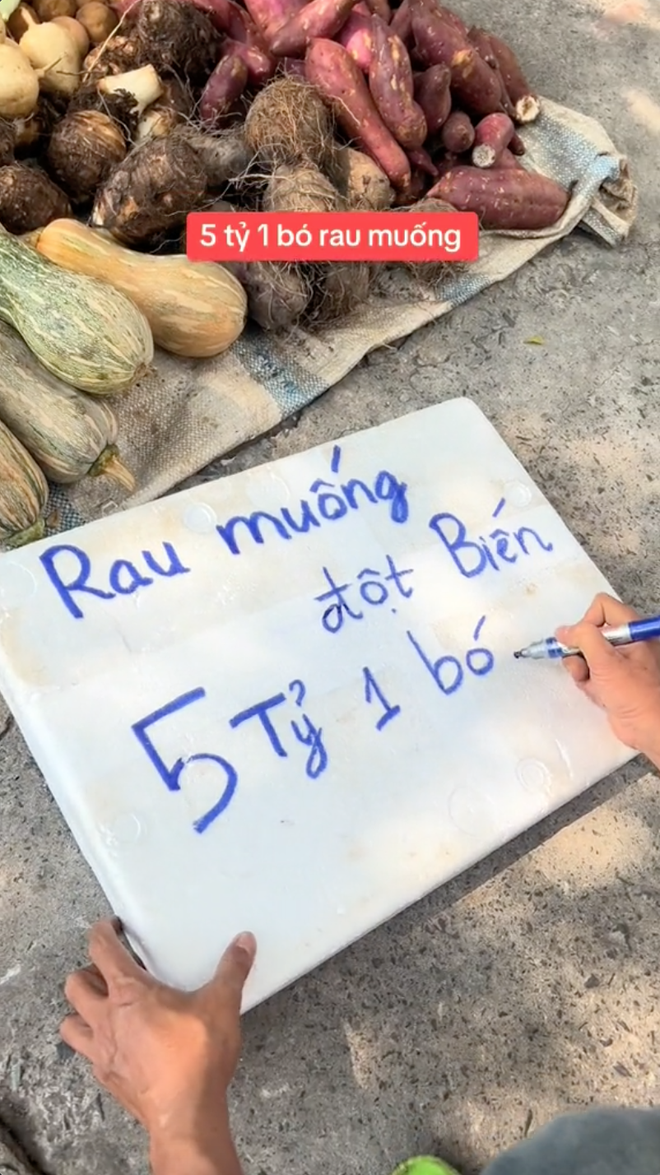 5 tỷ 1 bó rau muống
Rau muống
đột Biến
5 Tỷ 1 bó